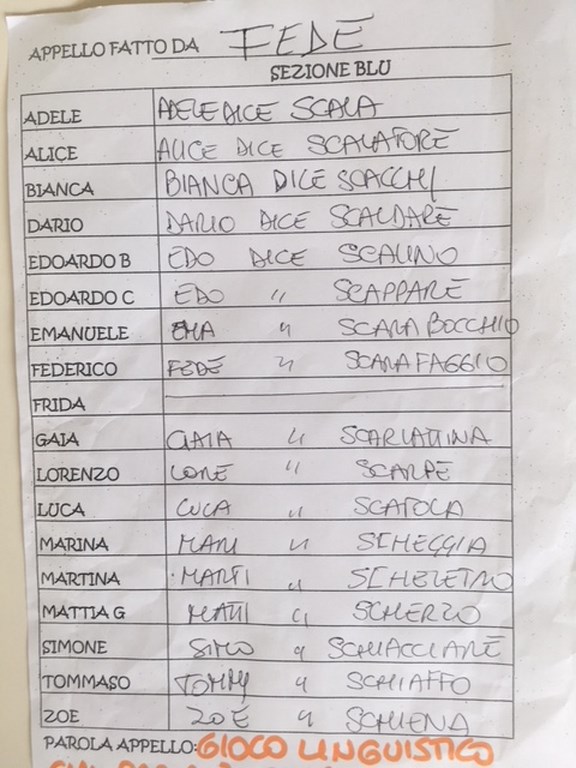 APPELLO FATTO DA FEDE
SEZIONE BLU
ADELE ADELE DICE SCALA
ALICE ALICE DICE SCALATORE
BIANCA BIANCA DICE SCACCHI
DARIO DARIO DICE SCALDARE
EDOARDO B EDO DICE SCALINO
EDOARDO C EDO " SCAPPARE
EMANUELE EMA " SCARABOCCHIO
FEDERICO FEDE " SCARAFAGGIO
FRIDA
GAIA GAIA " SCARLATTINA
LORENZO LORE " SCARPE
LUCA LUCA " SCATOLA
MARINA MARI " SCHEGGIA
MARTINA MARTI " SCHELETRO
MATTIA G MATTI " SCHERZO
SIMONE SIMO " SCHIACCIARE
TOMMASO TOMMY " SCHIAFFO
ZOE ZOE " SCHIENA
PAROLA APPELLO: GIOCO LINGUISTICO